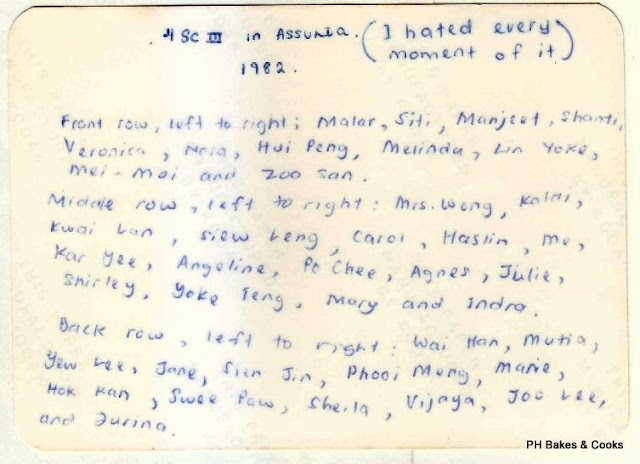 4 SC III in Assunta. (I hated every moment of it)
1982.
Front row, left to right; Malar, Siti, Manjeet, Shanti,
Veronica, Nora, Hui Peng, Melinda, Lin Yoke,
Mei-Mei and Zoo San.
Middle row, left to right: Mrs. Wong, Kalai,
Kwai Lan, Siew Leng, Carol, Haslin, me,
Kar Yee, Angeline, Po Chee, Agnes, Julie,
Shirley, Yoke Teng, Mary and Indra.
Back row, left to right: Wai Han, Mutia,
Yew Lee, Jane, Siew Jin, Phooi Meng, Marie,
Hok Kan, Swee Paw, Sheila, Vijaya, Joo Lee,
and Zurina.
PH Bakes & Cooks